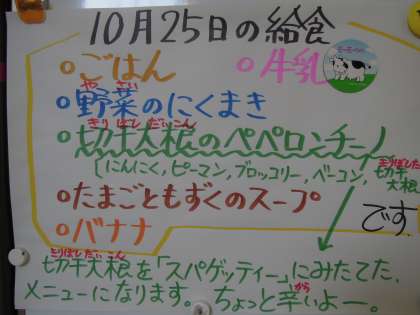 10月25日の給食
○ごはん ○牛乳
やさい
○野菜のにくまき
きりぼしだいこん
○切干大根のペペロンチーノ
[にんにく,ピーマン,ブロッコリー,ベーコン,切干大根
○たまごともずくのスープ
○バナナ です
きりぼしだいこん
切干大根を「スパゲッティー」にみたてた、
から
メニューになります。ちょっと辛いよー。